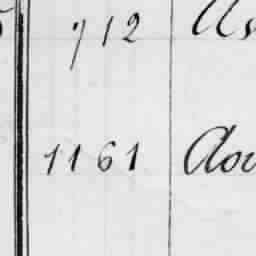 712
1161 Aou